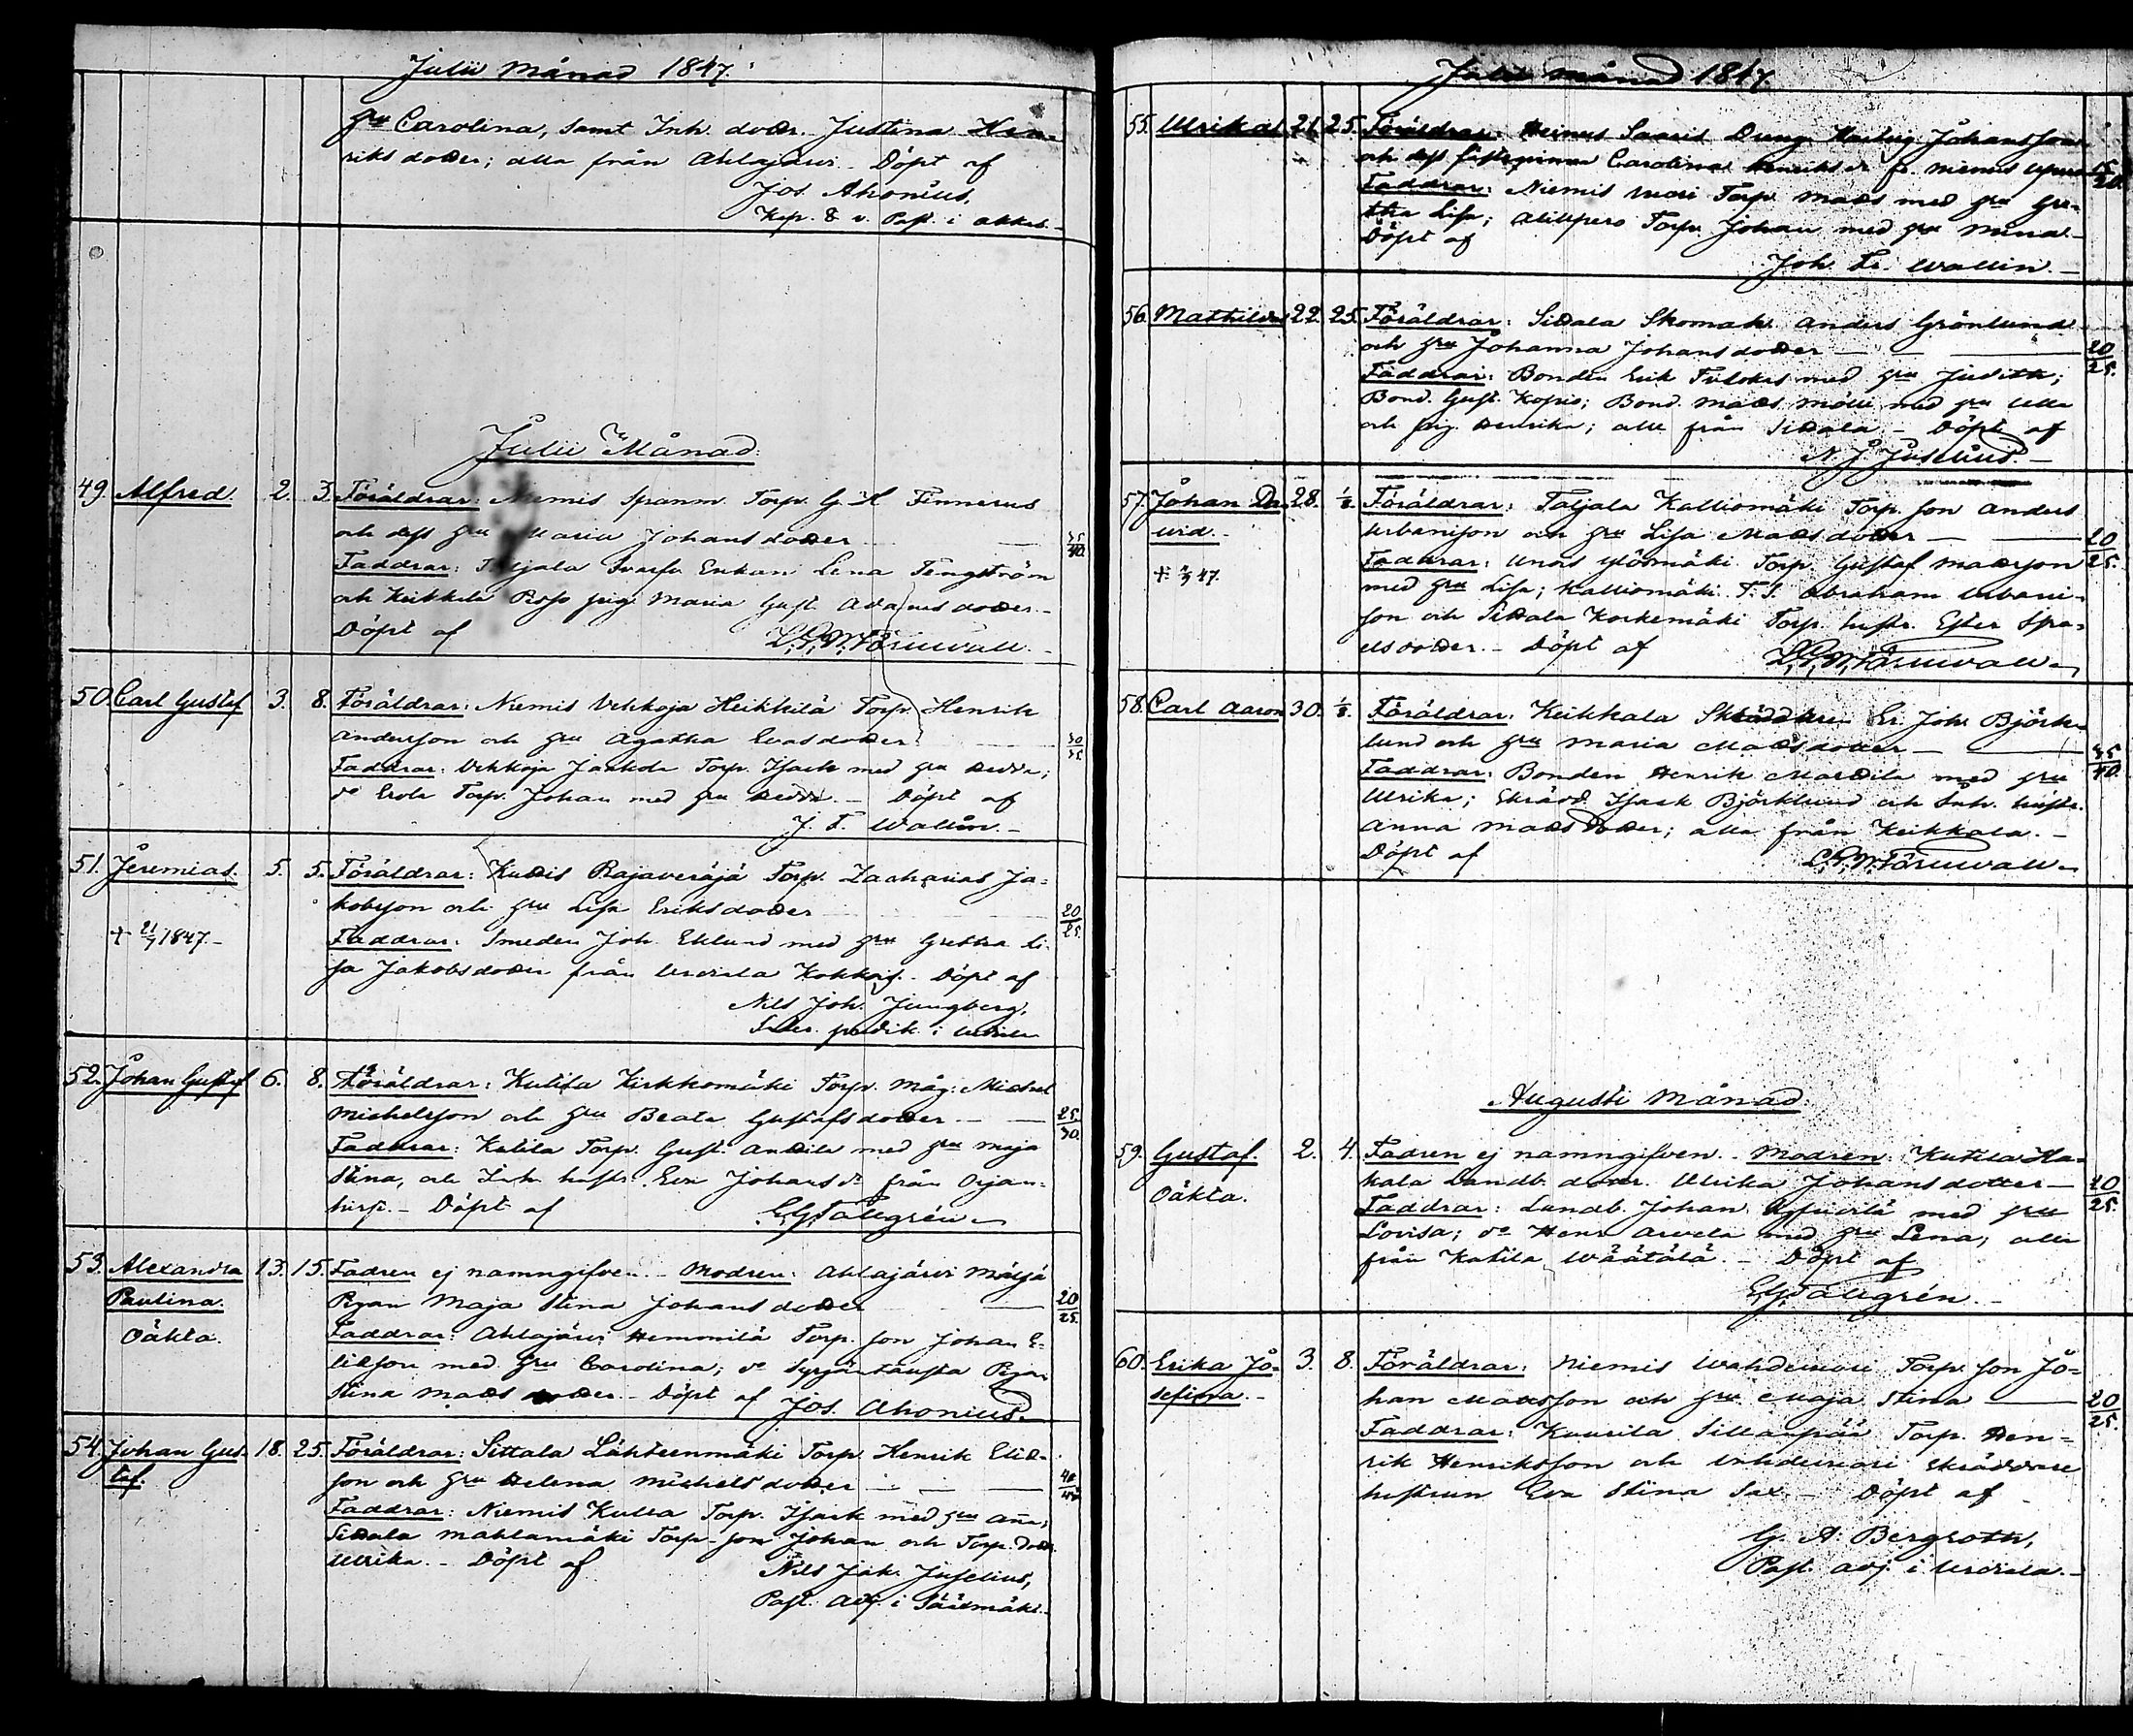 Julii Månad 1847.
gru Carolina, samt Inh. dottr. Justina Hen-
riks dotter; alla från Ahlajärvi. Döpt af
Jos. Ahonius,
Kap. & v. Past. i Akkas
Julii Månad.
49. Alfred. 2. 3. Föräldrar: Niemis Spanm. Torp. G. H. Finnerus
och dess gru Maria Johansdotter 35/40.
Faddrar: Taljala Svarfv. Enkan Lena Tengström
och Keikkala pig. Maria Gust. Adamsdotter.
Döpt af Törnwall.
50. Carl Gustaf 3. 8. Föräldrar: Niemis Uhkoja Heikkilä Torp. Henrik
Andersson och gru Agatha Evasdotter. 30/35.
Faddrar: Uhkoja Jaakola Torp. Isack med gru Hedda;
do Erola Torp. Johan med gru Hedda. Döpt af
J. F. Wallin.
51. Jeremias. 5. 5. Föräldrar: Kudis Rajaveräjä Torp. Zacharias Ja-
kobsson och gru Lisa Eriksdotter 20/25.
+ 21/7 1847. Faddrar: Smeden Joh. Eklund med gru Gretha Li-
sa Jakobsdotter från Urdiala Döpt af
Nils Joh. Jungberg,
predik. i Urdiala
52. Johan Gustaf 6. 8. Föräldrar: Kutila Kirkkomäki Torp. måg. Michel
Michelsson och gru Beata Gustafsdotter 25/30.
Faddrar: Kutila Torp. Gust. Anttila med gru Maja
Stina, och Inh. hustr. Eva Johansdr från
Döpt af Tallgrén
53. Alexandra 13. 15. Fadren ej namngifven. Modren: Ahlajärvi
Paulina. Pigan Maja Stina Johansdotter 20/25.
Oäkta. Faddrar: Ahlajärvi Hemmilä Torp. son Johan E-
liæson med gru Carolina; do Syrjäntausta Pigan
Stina Mattsdotter. Döpt af Jos. Ahonius.
54. Johan Gus- 18. 25. Föräldrar: Sittala Lähteenmäki Torp. Henrik Eliæ-
taf. son och gru Helena Michelsdotter 40/
Faddrar: Niemis Kulla Torp. Isack med gru Anna;
Sittala Mahlamäki Torp. son Johan och Torp. dottr.
Ulrika. Döpt af Nils Jak. Juselius,
Past. Adj. i Sääxmäki.
Julii månad 1847.
55. Ulrika 21. 25. Föräldrar: Saaris Dreng Johansson
och dess Carolina Henriksdr fr. Niemis
Faddrar: Niemis Torp. Matts med gru Gre-
tha Lisa; Torp. Johan med gru Mina.
Döpt af
Joh. Fr. Wallin.
56. Mathilda 22. 25. Föräldrar: Sittala Skomak. Anders Grönlund
och gru Johanna Johansdotter 20/25.
Faddrar: Bonden Erik med gru Judith;
Bond. Gust. Kopio; Bond. Matts med gru Ulla
och pig. Henrika; alla från Sittala. Döpt af
N. J. Juselius.
57. Johan Da- 28. 1/8. Föräldrar: Taljala Kalliomäki Torp. son Anders
vid. Urbansson och gru Lisa Mattsdotter 20/25.
47. Faddrar: Torp. Gustaf Mattsson
med gru Lisa; Kalliomäki T. S. Abraham Urbans-
son och Sittala Korkemäki Torp. hustr. Ester Isra-
elsdotter. Döpt af Törnwall
58. Carl Aaron 30. 1/8. Föräldrar: Keikkala Skräddaren Er. Joh. Björk-
lund och gru Maria Mattsdotter 35/40.
Faddrar: Bonden Henrik Marttila med gru
Ulrika; Skrädd. Isaak Björklund och Inh. hustr.
Anna Mattsdotter; alla från Keikkala.
Döpt af Törnwall
Augusti Månad.
59. Gustaf. 2. 4. Fadren ej namngifven. Modren: Kutila Ha-
Oäkta. kala Landb. dottr. Ulrika Johansdotter 20/25.
Faddrar: Landb. Johan med gru
Lovisa; do Henr. Arvela med gru Lena; alla
från Kutila Wäätälä. Döpt af
Tallgrén.
60. Erika Jo- 3. 8. Föräldrar: Niemis Torp. son Jo-
sefina. han Mattsson och gru Maja Stina 20/25.
Faddrar: Kuurila Sillanpää Torp. Hen-
rik Henriksson och skräddare
hustrun Eva Stina Sax. Döpt af
G. A. Bergroth,
Past. adj. i Urdiala.